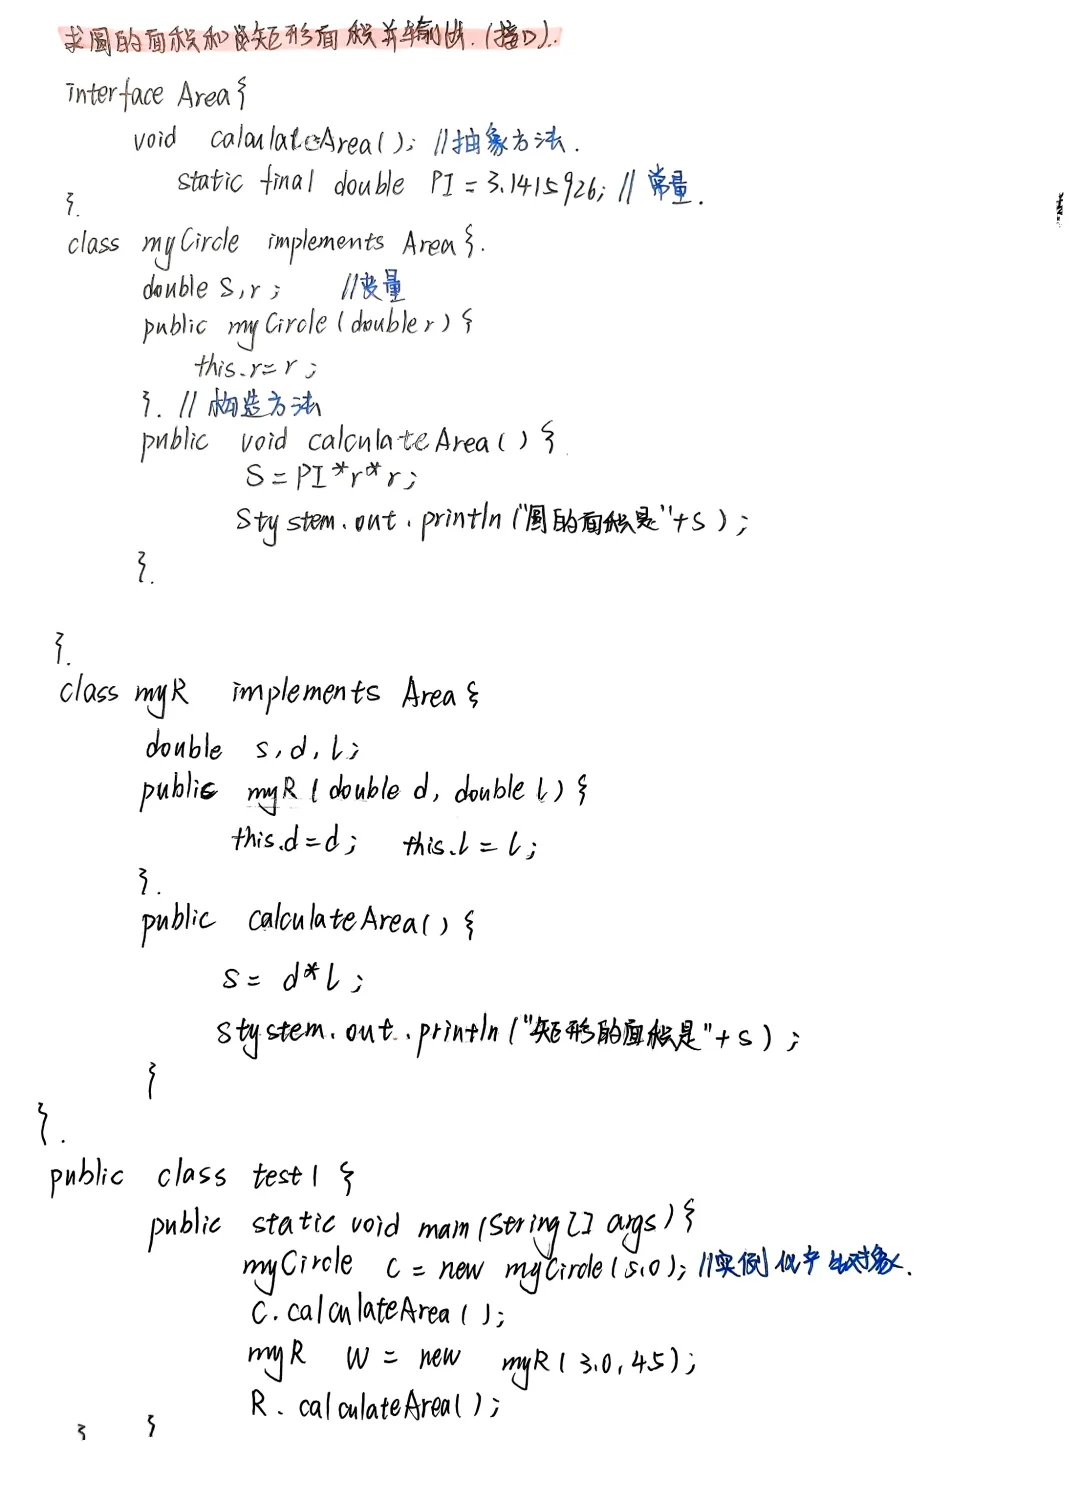 求圆的面积和矩形面积并输出.(接口).
interface Area{
void calculateArea(); //抽象方法.
static final double PI = 3.1415926; // 常量.
}.
class myCircle implements Area{.
double S,r; //变量
public myCircle(double r){
this.r=r;
}. // 构造方法
public void calculateArea(){
S=PI*r*r;
Stystem.out.println("圆的面积是"+S);
}.
}.
class myR implements Area{
double s,d,l;
public myR(double d, double l){
this.d=d; this.l=l;
}.
public calculateArea(){
s= d*l;
Stystem.out.println("矩形的面积是"+s);
}
}.
public class test1{
public static void main(String[] args){
myCircle C=new myCircle(5.0); //实例化产生对象.
C.calculateArea();
myR W = new myR(3.0,45);
R.calculateArea();
} }